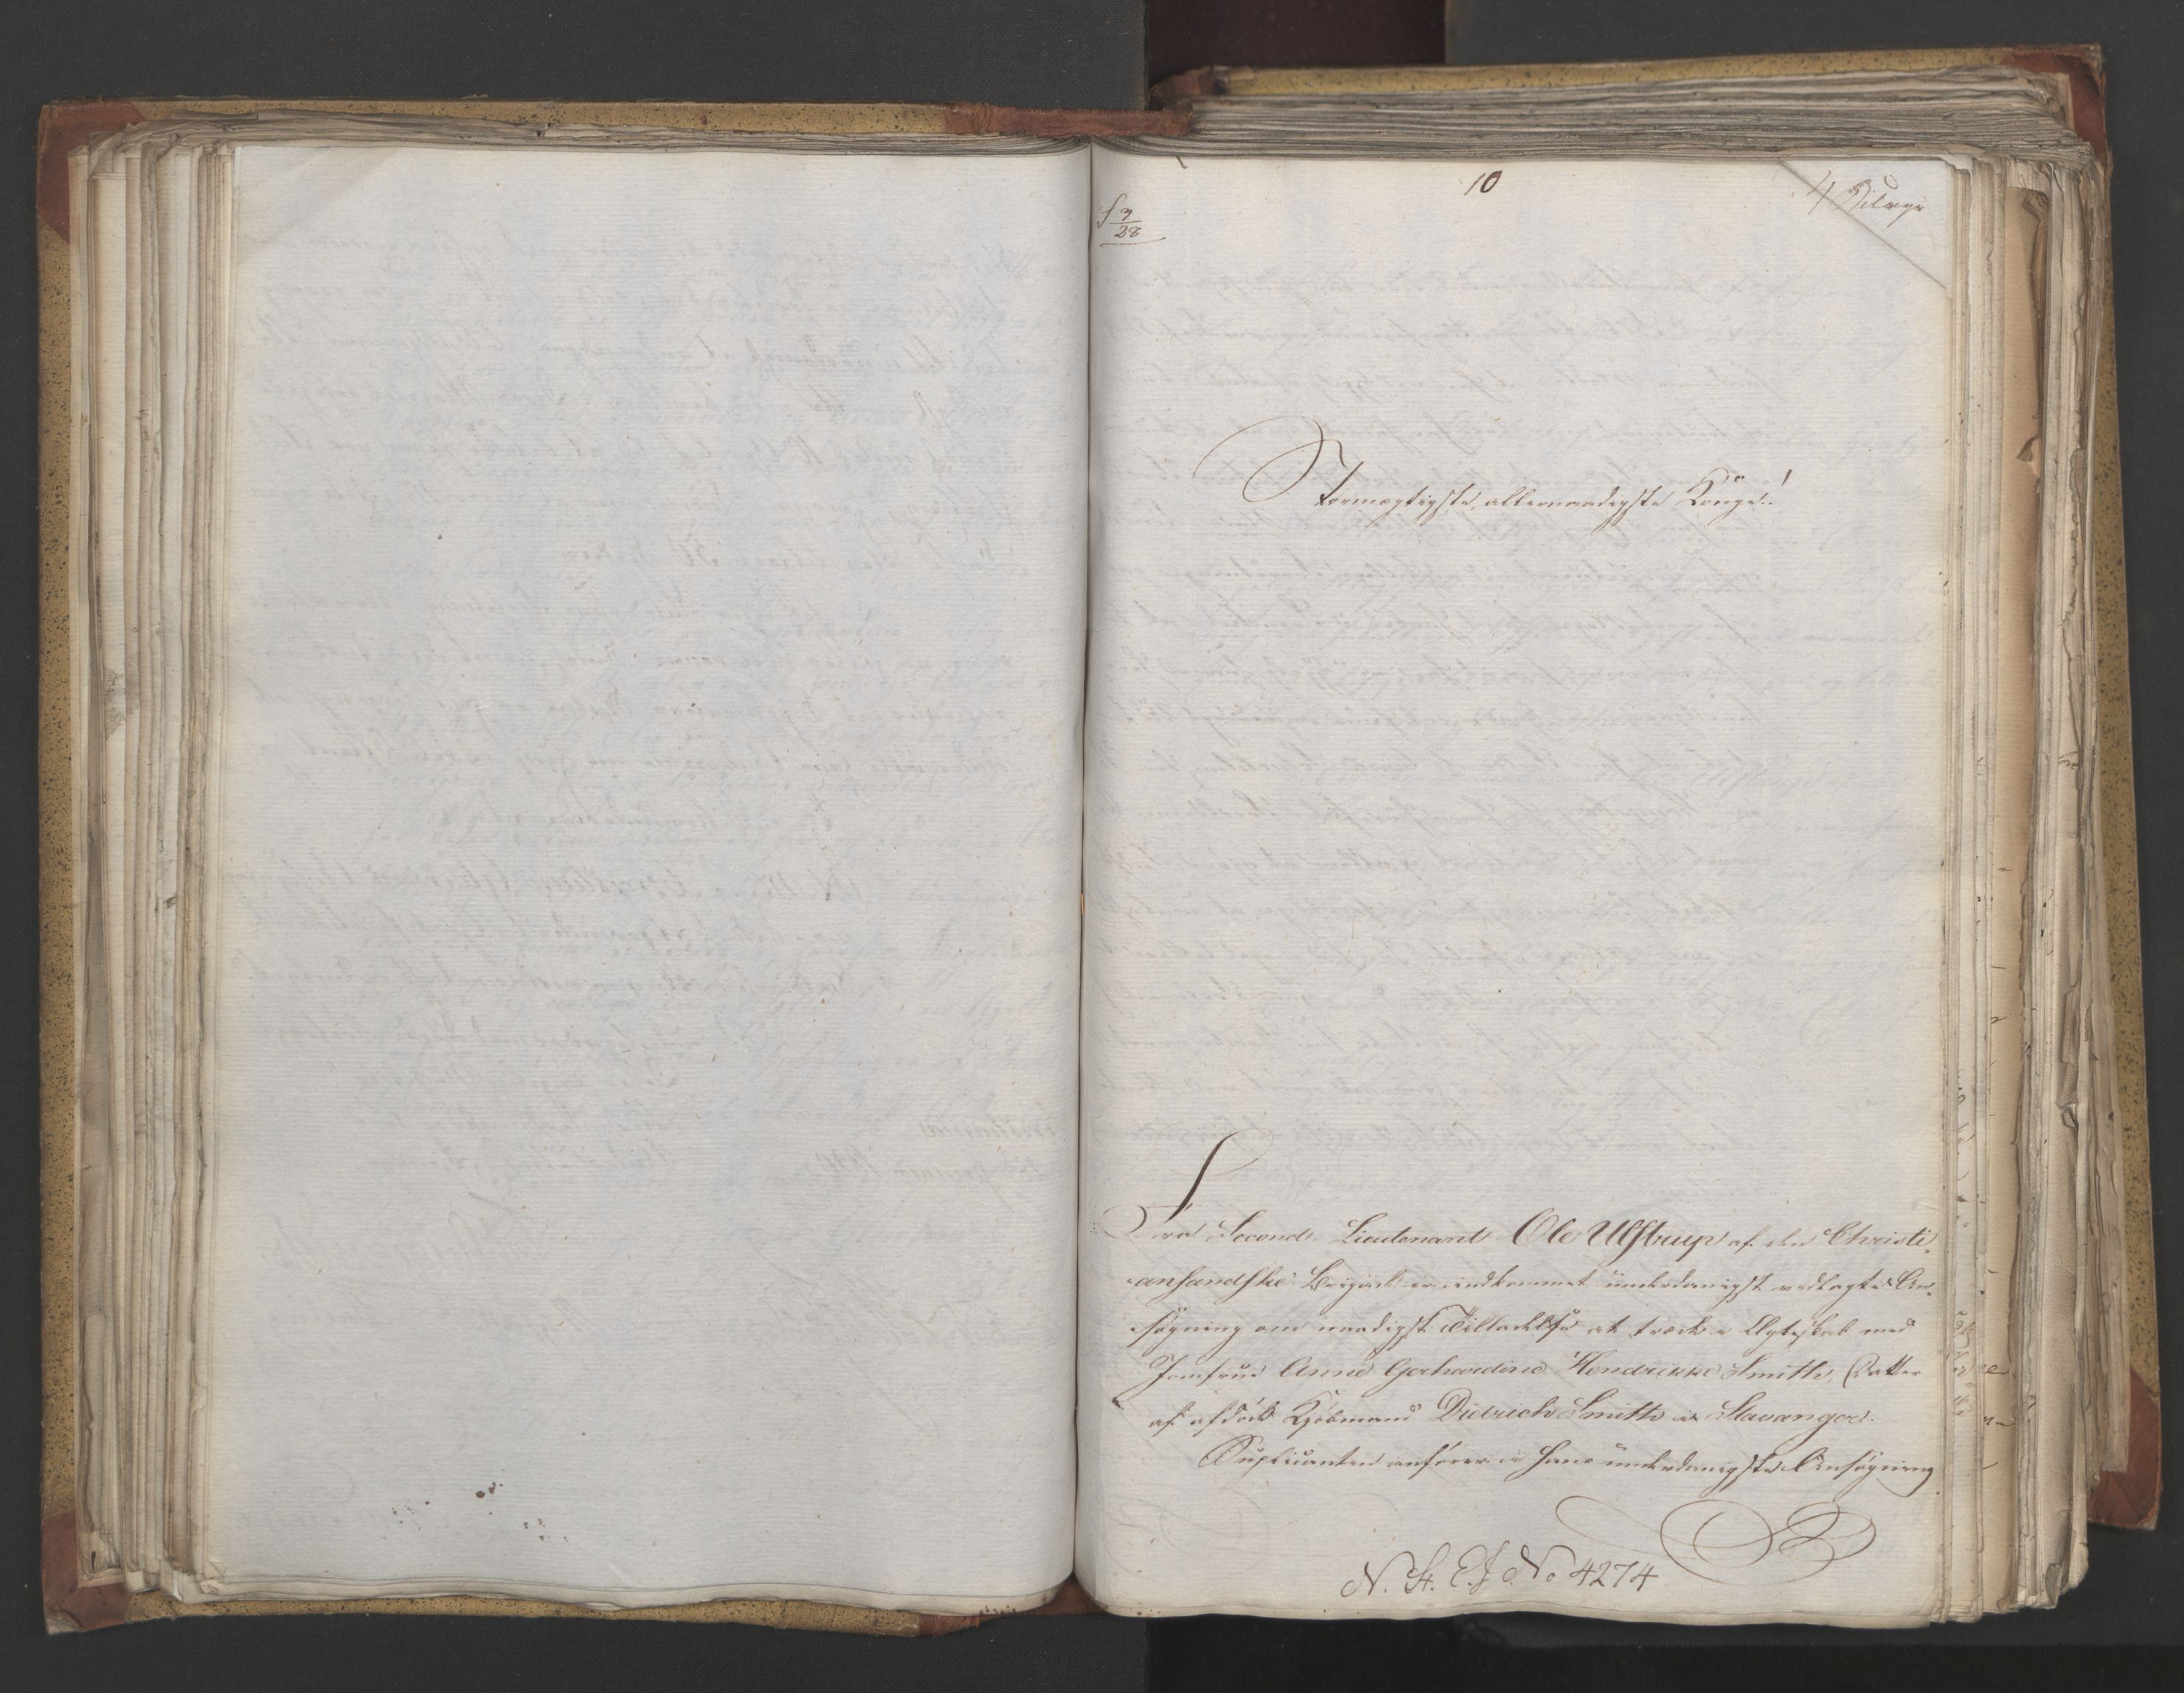 10
4 Bilage
S 3/28
Stormægtigste, allernaadigste Konge!
Fra Second Lieutenant Ole Ulstrup af den Christi-
ansandske Brigade er indkommet underdanigst vedlagte An-
søgning om naadigst Tilladelse at træde i Ægteskab med
Jomfrue Anne Gerhardine Hendrikke Smith, Datter
af afdøde Kjøbmand Didrich Smith i Stavanger.
Suplicanten anfører i hans underdanigste Ansøgning
N. St. E. J. No 4274